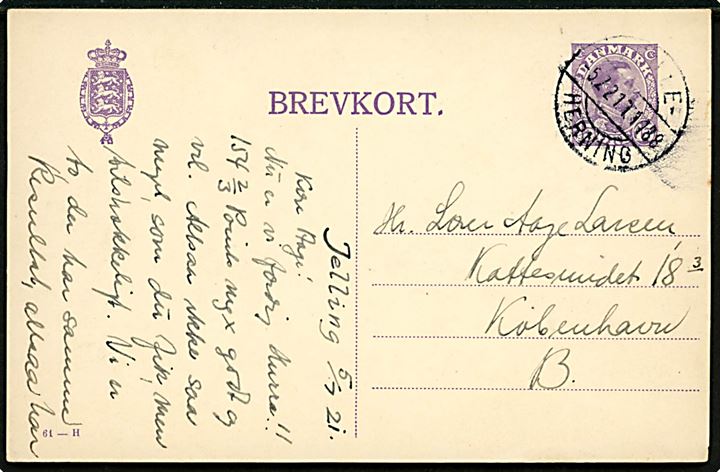 BREVKORT.
DANMARK
HERNING
Jelling 5/7 21.
Kære Aage!
Nu er vi færdig Hurra!!
154 2/3 Points mgx godt og
vel. Altsaa ikke saa
meget, som du fik, men
tilstrækkeligt. Vi er
to der har samme
Resultat, altsaa har
Hr. Lærer Aage Larsen,
Kattesundet 18 3
København
B.
61 — H